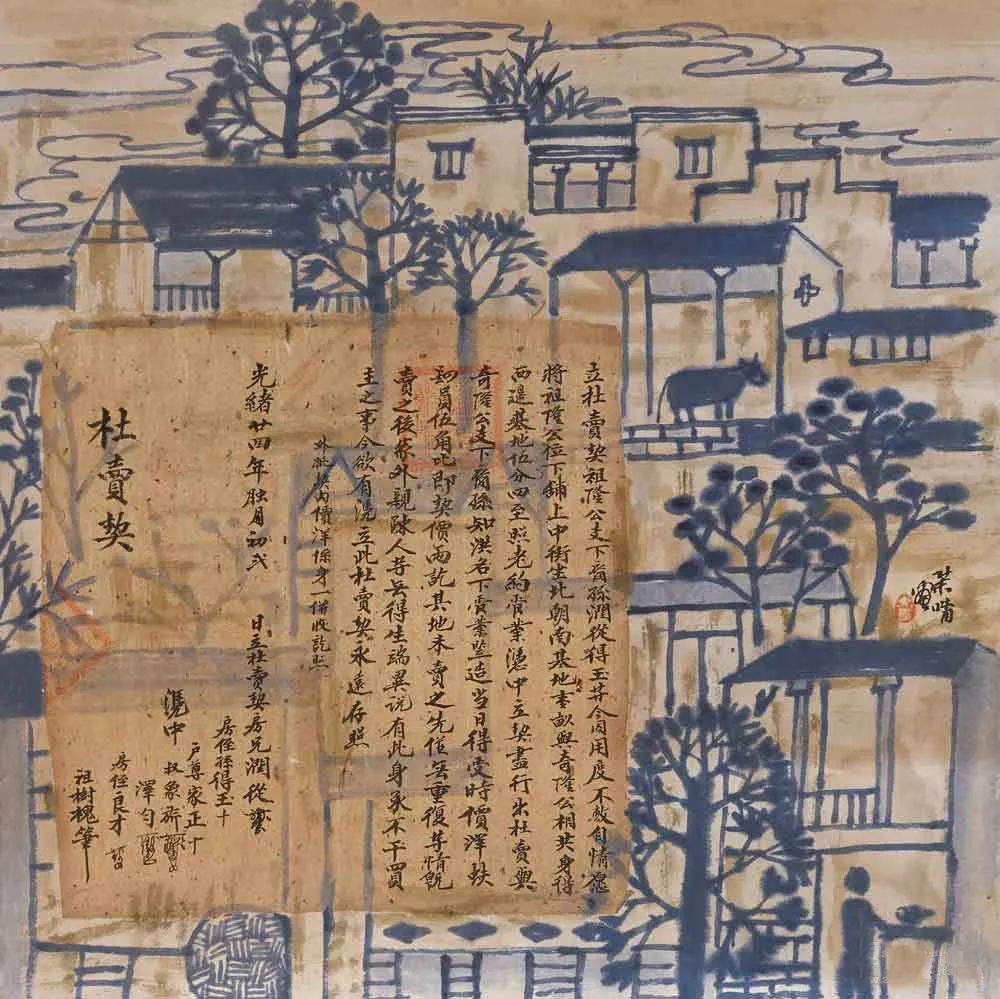 立杜賣契祖隆公支下裔孫潤從得玉等今因用度不敷自情愿
將祖隆公位下鋪上中街坐北朝南基地壹畝與奇隆公相共身得
西邊基地伍分四至照老約管業憑中立契盡行出杜賣與
奇隆公支下裔孫知洪名下管業豎造當日得受時價洋蚨
員伍角比即契價兩訖其地未賣之先從無重復等情既
賣之後家外親疎人等毋得生端異說有此身承不干買
主之事今欲有憑立此杜賣契永遠存照
外批契內價洋係身一借收訖照
光緒廿四年月初弍
日立杜賣契房兄潤從
房侄孫得玉十
戶尊家正十
憑中
叔象新
澤勻
房侄良才
祖樹槐筆
杜賣契